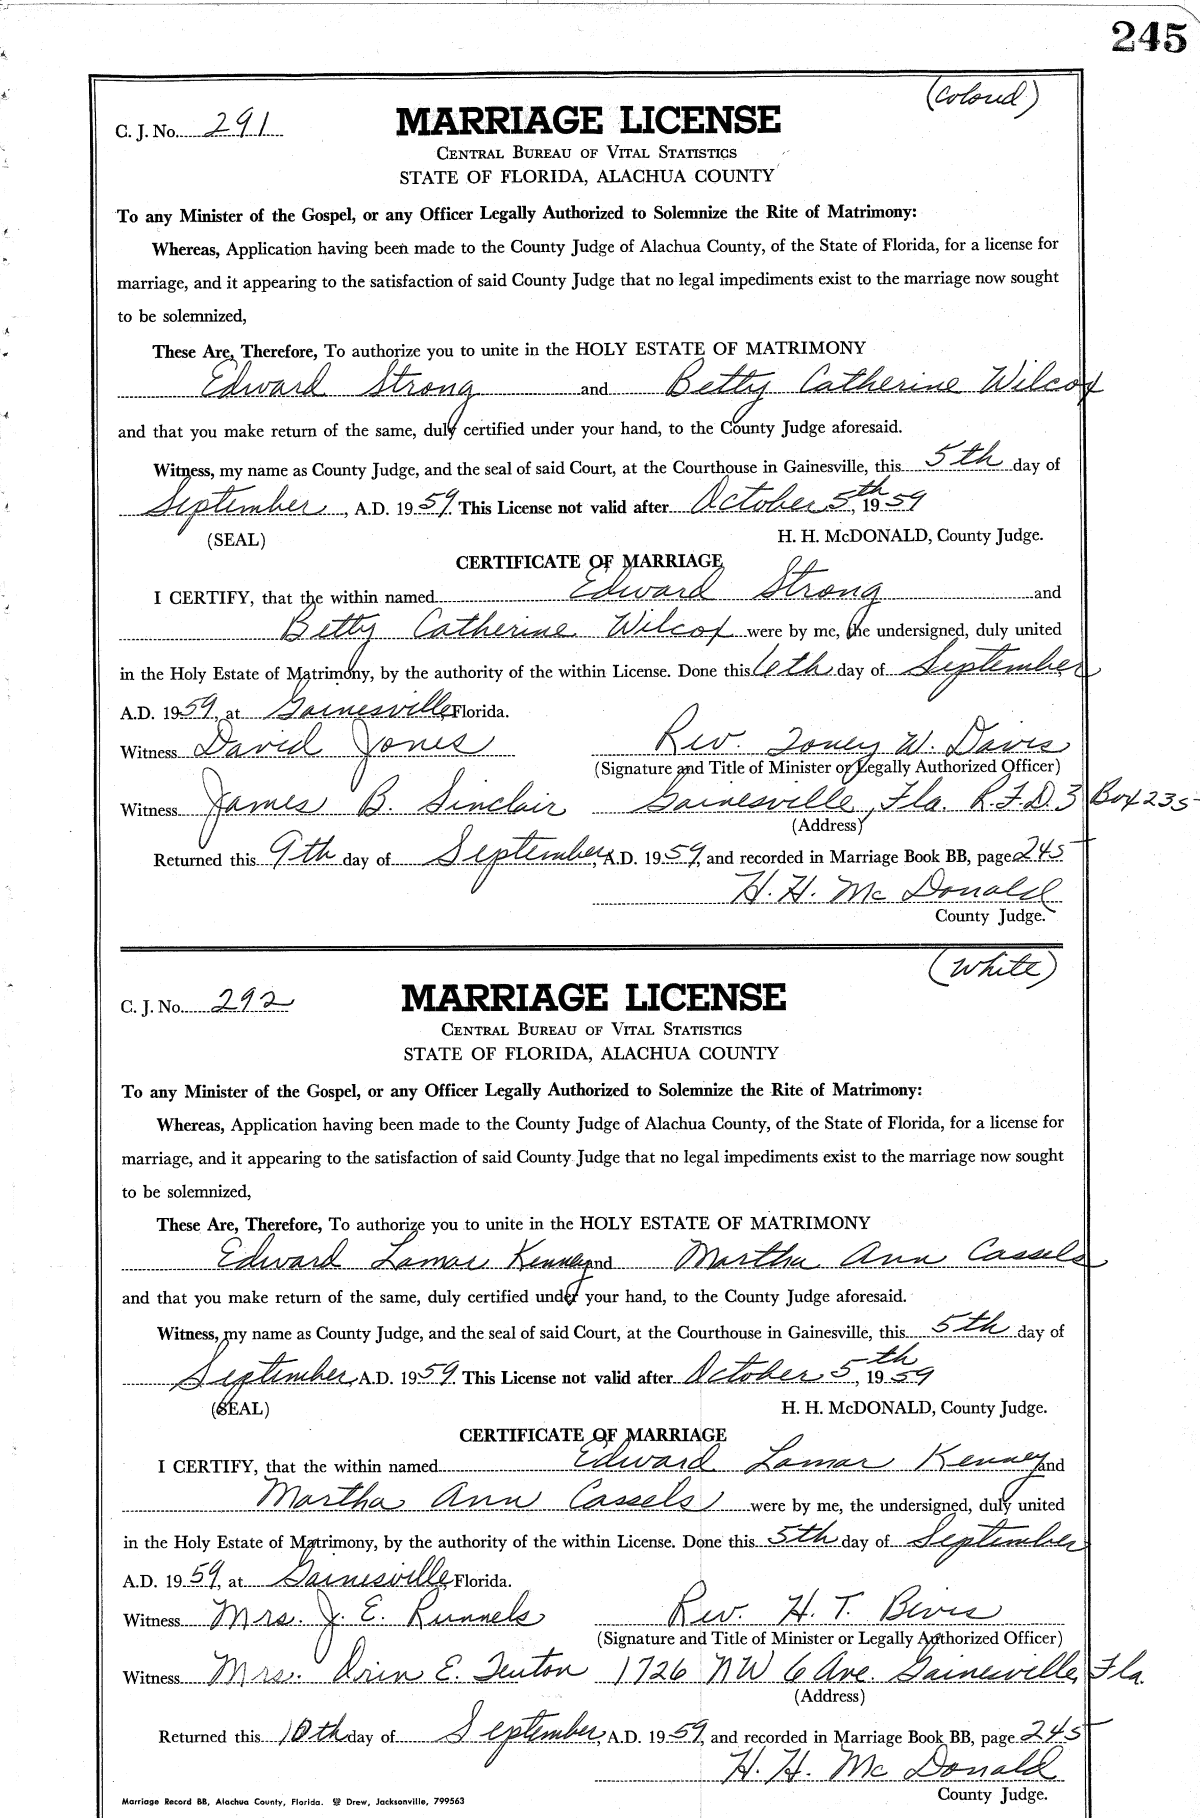 245
(Colored)
C. J. No. 291
MARRIAGE LICENSE
CENTRAL BUREAU OF VITAL STATISTICS
STATE OF FLORIDA, ALACHUA COUNTY
To any Minister of the Gospel, or any Officer Legally Authorized to Solemnize the Rite of Matrimony:
Whereas, Application having been made to the County Judge of Alachua County, of the State of Florida, for a license for
marriage, and it appearing to the satisfaction of said County Judge that no legal impediments exist to the marriage now sought
to be solemnized,
These Are, Therefore, To authorize you to unite in the HOLY ESTATE OF MATRIMONY
Edward Strong and Betty Catherine Wilcox
and that you make return of the same, duly certified under your hand, to the County Judge aforesaid.
Witness, my name as County Judge, and the seal of said Court, at the Courthouse in Gainesville, this 5th day of
September, A.D. 1959. This License not valid after October 5th, 1959
(SEAL) H. H. McDONALD, County Judge.
CERTIFICATE OF MARRIAGE
I CERTIFY, that the within named Edward Strong and
Betty Catherine Wilcox were by me, the undersigned, duly united
in the Holy Estate of Matrimony, by the authority of the within License. Done this 6th day of September
A.D. 1959, at Gainesville, Florida.
Witness David Jones Rev. Toney W. Davis
(Signature and Title of Minister or Legally Authorized Officer)
Witness James B. Sinclair Gainesville, Fla. R.F.D. 3 Box 235
(Address)
Returned this 9th day of September, A.D. 1959, and recorded in Marriage Book BB, page 245
H. H. McDonald
County Judge.
(White)
C. J. No. 292
MARRIAGE LICENSE
CENTRAL BUREAU OF VITAL STATISTICS
STATE OF FLORIDA, ALACHUA COUNTY
To any Minister of the Gospel, or any Officer Legally Authorized to Solemnize the Rite of Matrimony:
Whereas, Application having been made to the County Judge of Alachua County, of the State of Florida, for a license for
marriage, and it appearing to the satisfaction of said County Judge that no legal impediments exist to the marriage now sought
to be solemnized,
These Are, Therefore, To authorize you to unite in the HOLY ESTATE OF MATRIMONY
Edward Lamar Kenney and Martha Ann Cassels
and that you make return of the same, duly certified under your hand, to the County Judge aforesaid.
Witness, my name as County Judge, and the seal of said Court, at the Courthouse in Gainesville, this 5th day of
September, A.D. 1959. This License not valid after October 5th, 1959
(SEAL) H. H. McDONALD, County Judge.
CERTIFICATE OF MARRIAGE
I CERTIFY, that the within named Edward Lamar Kenney and
Martha Ann Cassels were by me, the undersigned, duly united
in the Holy Estate of Matrimony, by the authority of the within License. Done this 5th day of September
A.D. 1959, at Gainesville, Florida.
Witness Mrs. J. E. Runnels Rev. H. T. Bevis
(Signature and Title of Minister or Legally Authorized Officer)
Witness Mrs. Orin E. Tenton 1726 NW 6 Ave. Gainesville, Fla.
(Address)
Returned this 10th day of September, A.D. 1959, and recorded in Marriage Book BB, page 245
H. H. McDonald
County Judge.
Marriage Record BB, Alachua County, Florida. Drew, Jacksonville, 799563